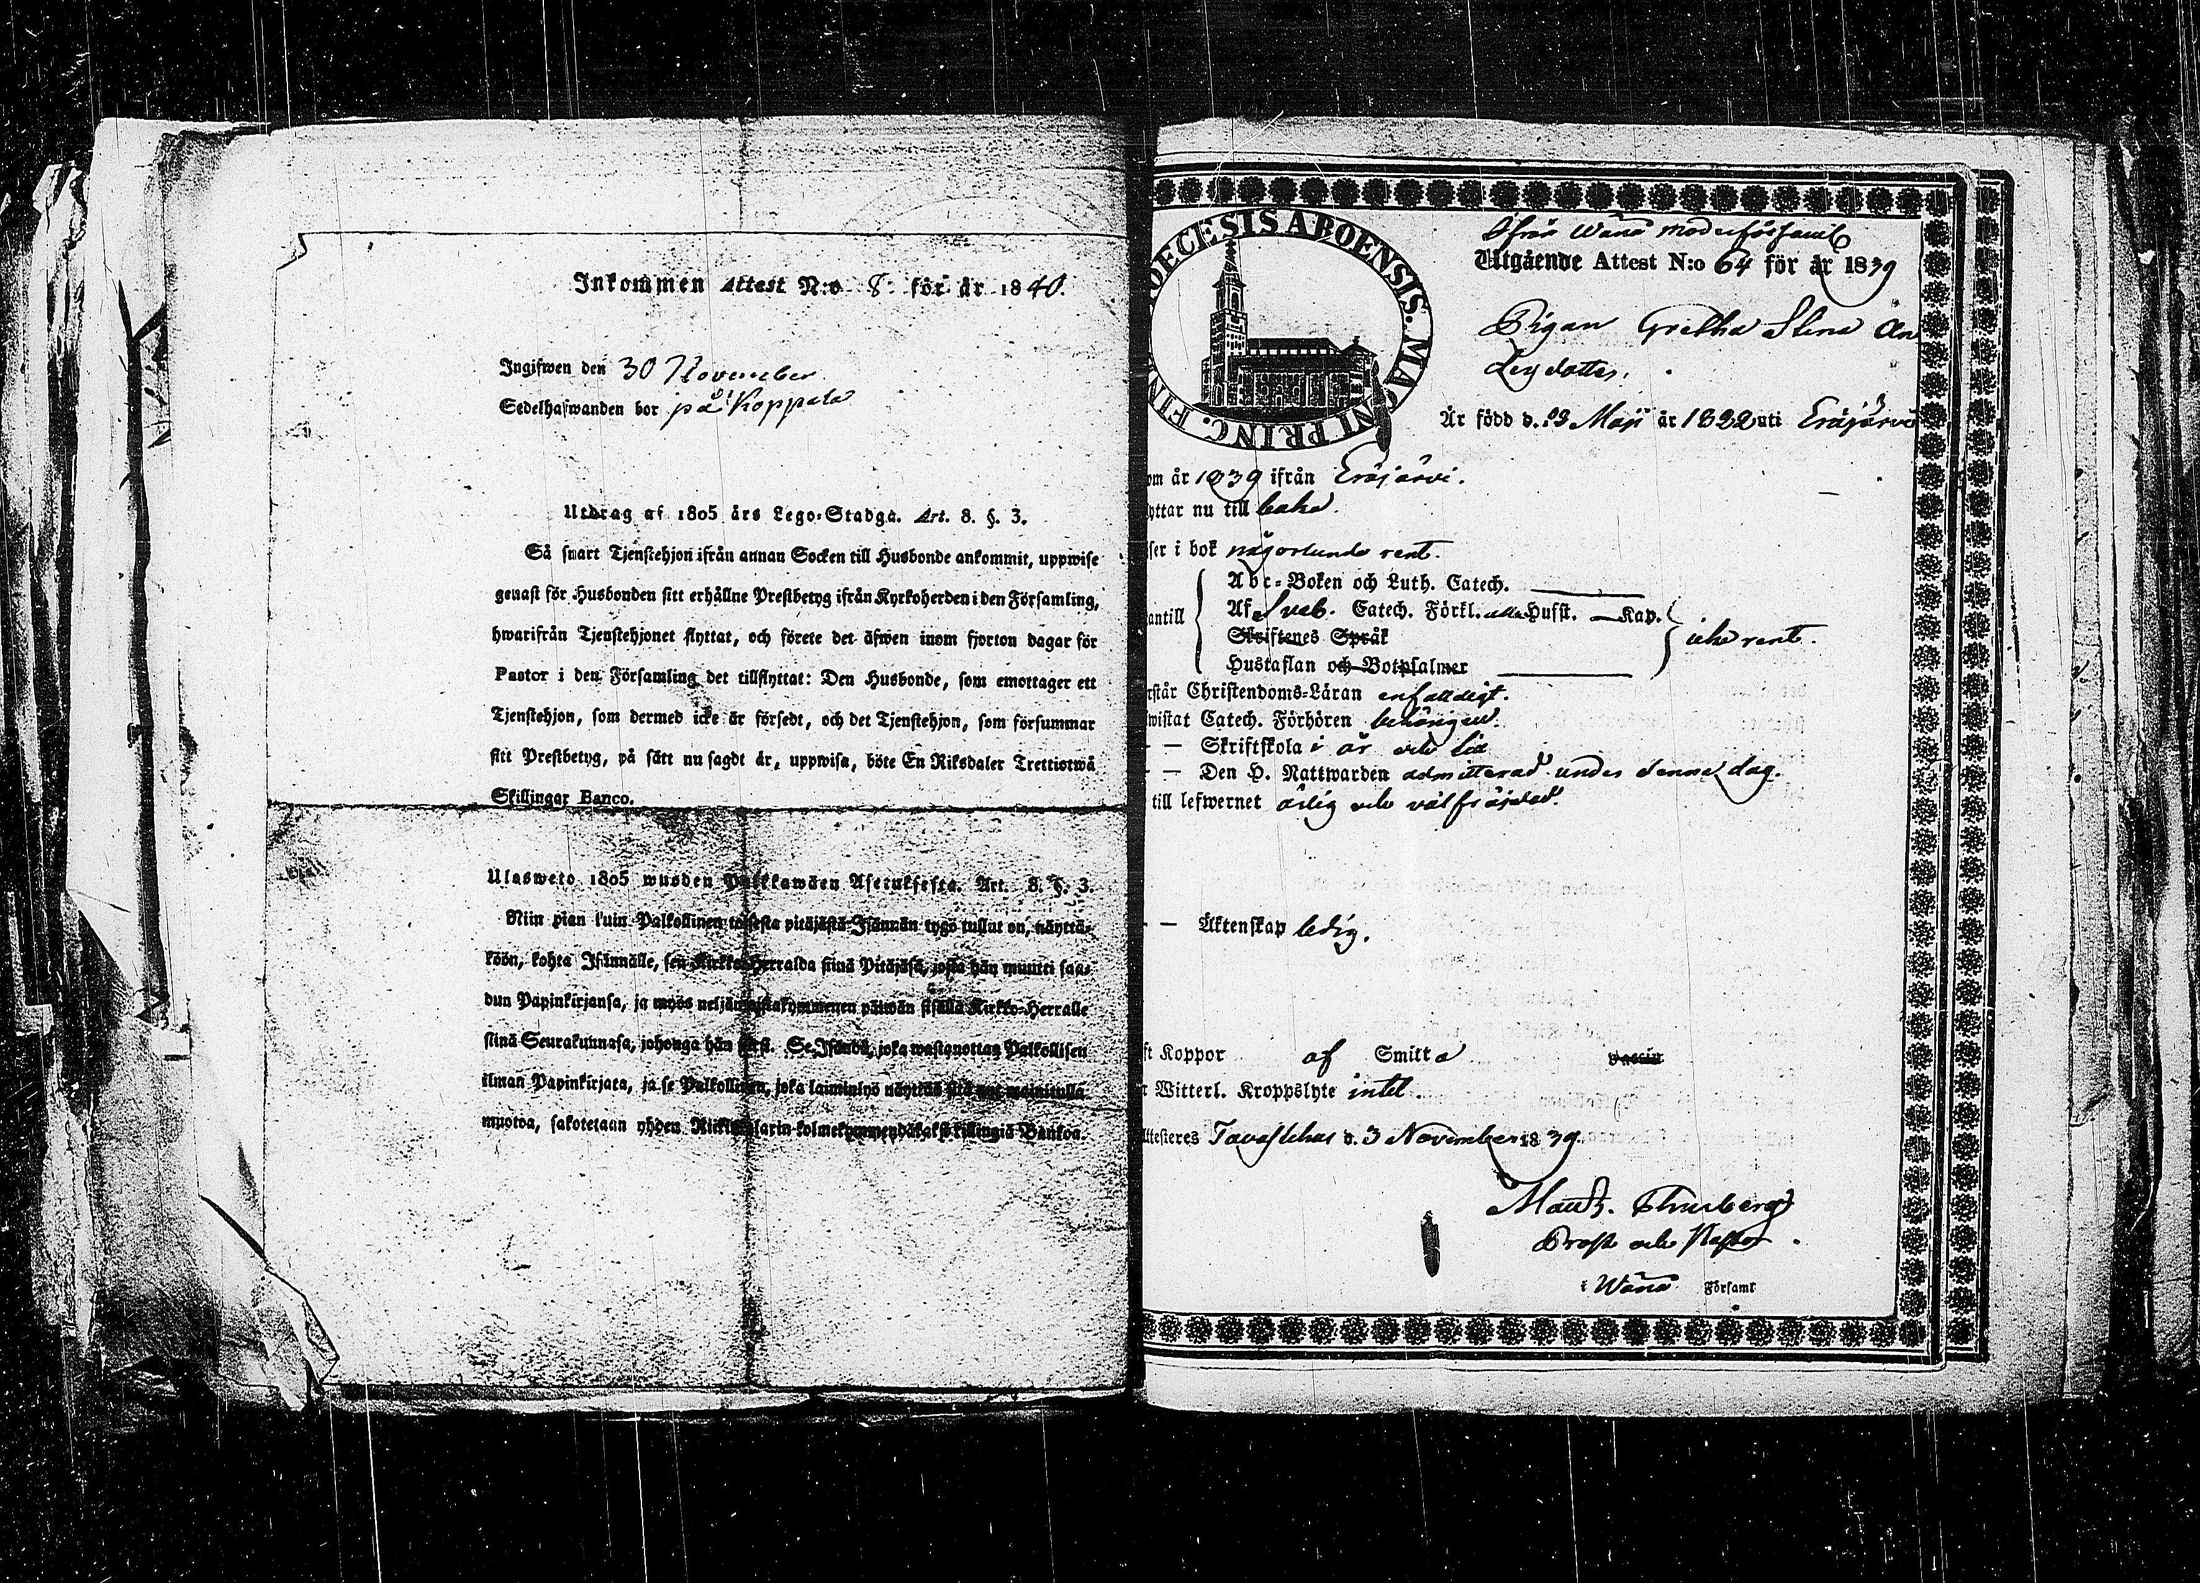 Inkommen Attest N:o 8 för år 1840.
Ingifwen den 30 November
Sedelhafwanden bor på Koppala
Utdrag af 1805 års Lego-Stadga. Art. 8. §. 3.
Så snart Tjenstehjon ifrån annan Socken till Husbonde ankommit, uppwise
genast för Husbonden sitt erhållne Prestbetyg ifrån Kyrkoherden i den Församling,
hwarifrån Tjenstehjonet flyttat, och förete det äfwen inom fjorton dagar för
Pastor i den Församling det tillflyttat: Den Husbonde, som emottager ett
Tjenstehjon, som dermed icke är försedt, och det Tjenstehjon, som försummar
sitt Prestbetyg, på sätt nu sagdt är, uppwisa, böte En Riksdaler Trettiotwå
Skillingar Banco.
Ulosweto 1805 wuoden Palkkawäen Asetuksesta. Art. 8. §. 3.
Niin pian kuin Palkollinen toisesta pitäjästä Isännän tygö tullut on, näyttä-
köön, kohta Isännälle, sen Kirkko-Herralda siinä Pitäjäsä, josta hän muutti saa-
dun Papinkirjansa, ja myös neljäntoistakymmenen päiwän sisällä Kirkko-Herralle
siinä Seurakunnasa, johonga hän siirsi. Se Isändä, joka wastanottaa Palkollisen
ilman Papinkirjata, ja se Palkollinen, joka laiminlyö näyttää sitä nyt mainitulla
muotoa, sakotetaan yhden Riikintalarin kolmekymmendäkaksi killingiä Bankoa.
DIOECESIS ABOENSIS. MAGNI PRINC. FIN
Ifrån Wånå moderförsaml
Utgående Attest N:o 64 för år 1839
Pigan Gretha Stina An
dersdotter.
Är född d. 23 Maji år 1822 uti Eräjärvi
om år 1839 ifrån Eräjärvi.
yttar nu till baka.
ser i bok någorlunda rent.
Abc-Boken och Luth. Catech.
antill Af Sveb. Catech. Förkl. alla Hufst. — Kap.
Skriftenes Språk icke rent.
Hustaflan och Botpsalmer
rstår Christendoms-Läran enfaldigt.
wistat Catech. Förhören behörigen.
— — Skriftskola i år och lid
— — Den H. Nattwarden admitterad under denna dag.
till lefwernet ärlig och välfräjdad.
— — Äktenskap ledig.
ft Koppor af Smitta vaccin
r Witterl. Kroppslyte intet.
Attesteres Tavastehus d. 3 November 1839.
Maur. Thurberg
Prost och Pastor.
i Wånå Församl